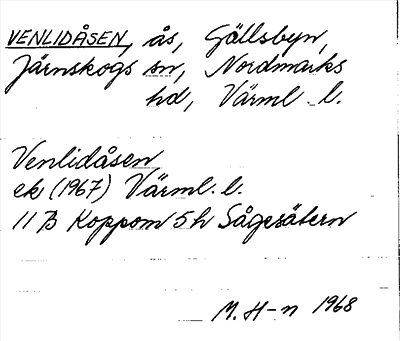 VENLIDÅSEN, ås, Gällsbyn,
Järnskogs sn, Nordmarks
hd, Värml. l.
Venlidåsen
ek (1967) Värml. l.
11 B Koppom 5 h Sågesätern
M. H-n 1968